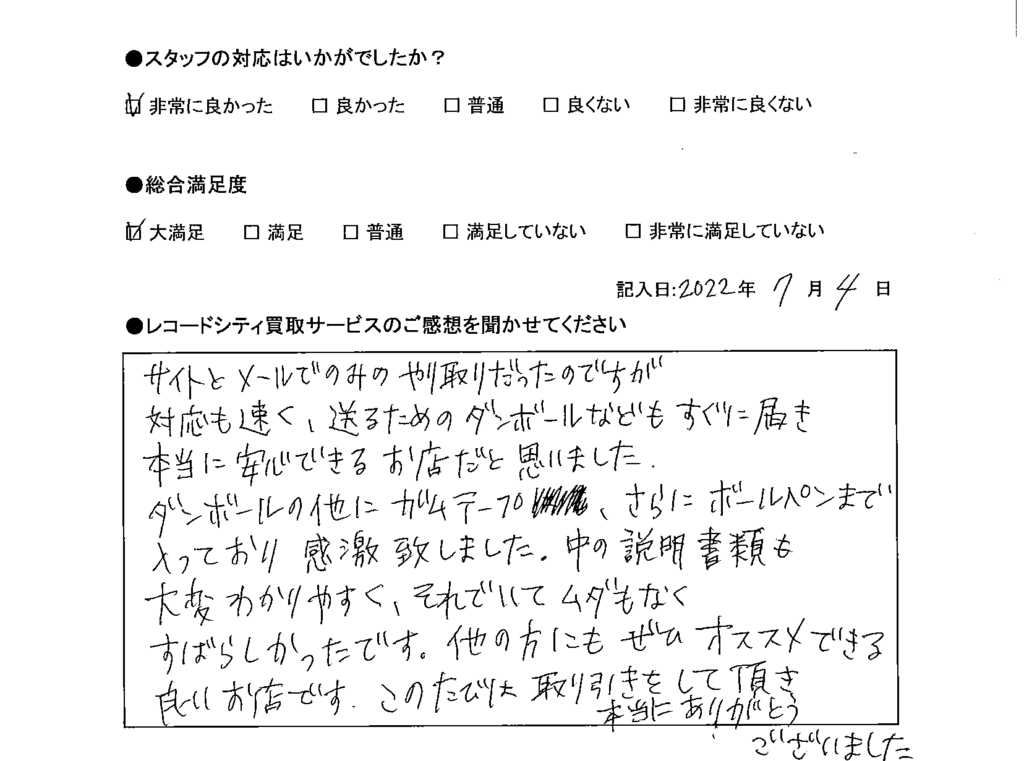 ●スタッフの対応はいかがでしたか？
☑ 非常に良かった □ 良かった □ 普通 □ 良くない □ 非常に良くない
●総合満足度
☑ 大満足 □ 満足 □ 普通 □ 満足していない □ 非常に満足していない
記入日:2022年 7月 4日
●レコードシティ買取サービスのご感想を聞かせてください
サイトとメールでのみのやり取りだったのですが
対応も速く、送るためのダンボールなどもすぐに届き
本当に安心できるお店だと思いました.
ダンボールの他にガムテープ、さらにボールペンまで
入っており感激致しました.中の説明書類も
大変わかりやすく、それでいてムダもなく
すばらしかったです。他の方にもぜひオススメできる
良いお店です.このたびは取り引きをして頂き
本当にありがとう
ございました